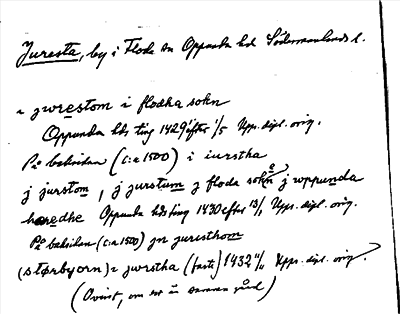 Juresta, by i Floda sn Oppunda hd Södermanlands l.
i jwrestom i flodha sokn
Oppunda hds ting 1429 efter 1/5 Upps. dipl. orig.
På baksidan (c:a 1500) i iurstha
j jurstom, j jurstum j floda sokn j wppunda
haredhe Oppunda hds ting 1430 efter 13/1 Upps. dipl. orig.
På baksidan (c:a 1500) jn juresthom
(størbyorn) i jwrstha (faste) 1432 11/11 Upps. dipl. orig.
(Ovisst, om det är samma gård)